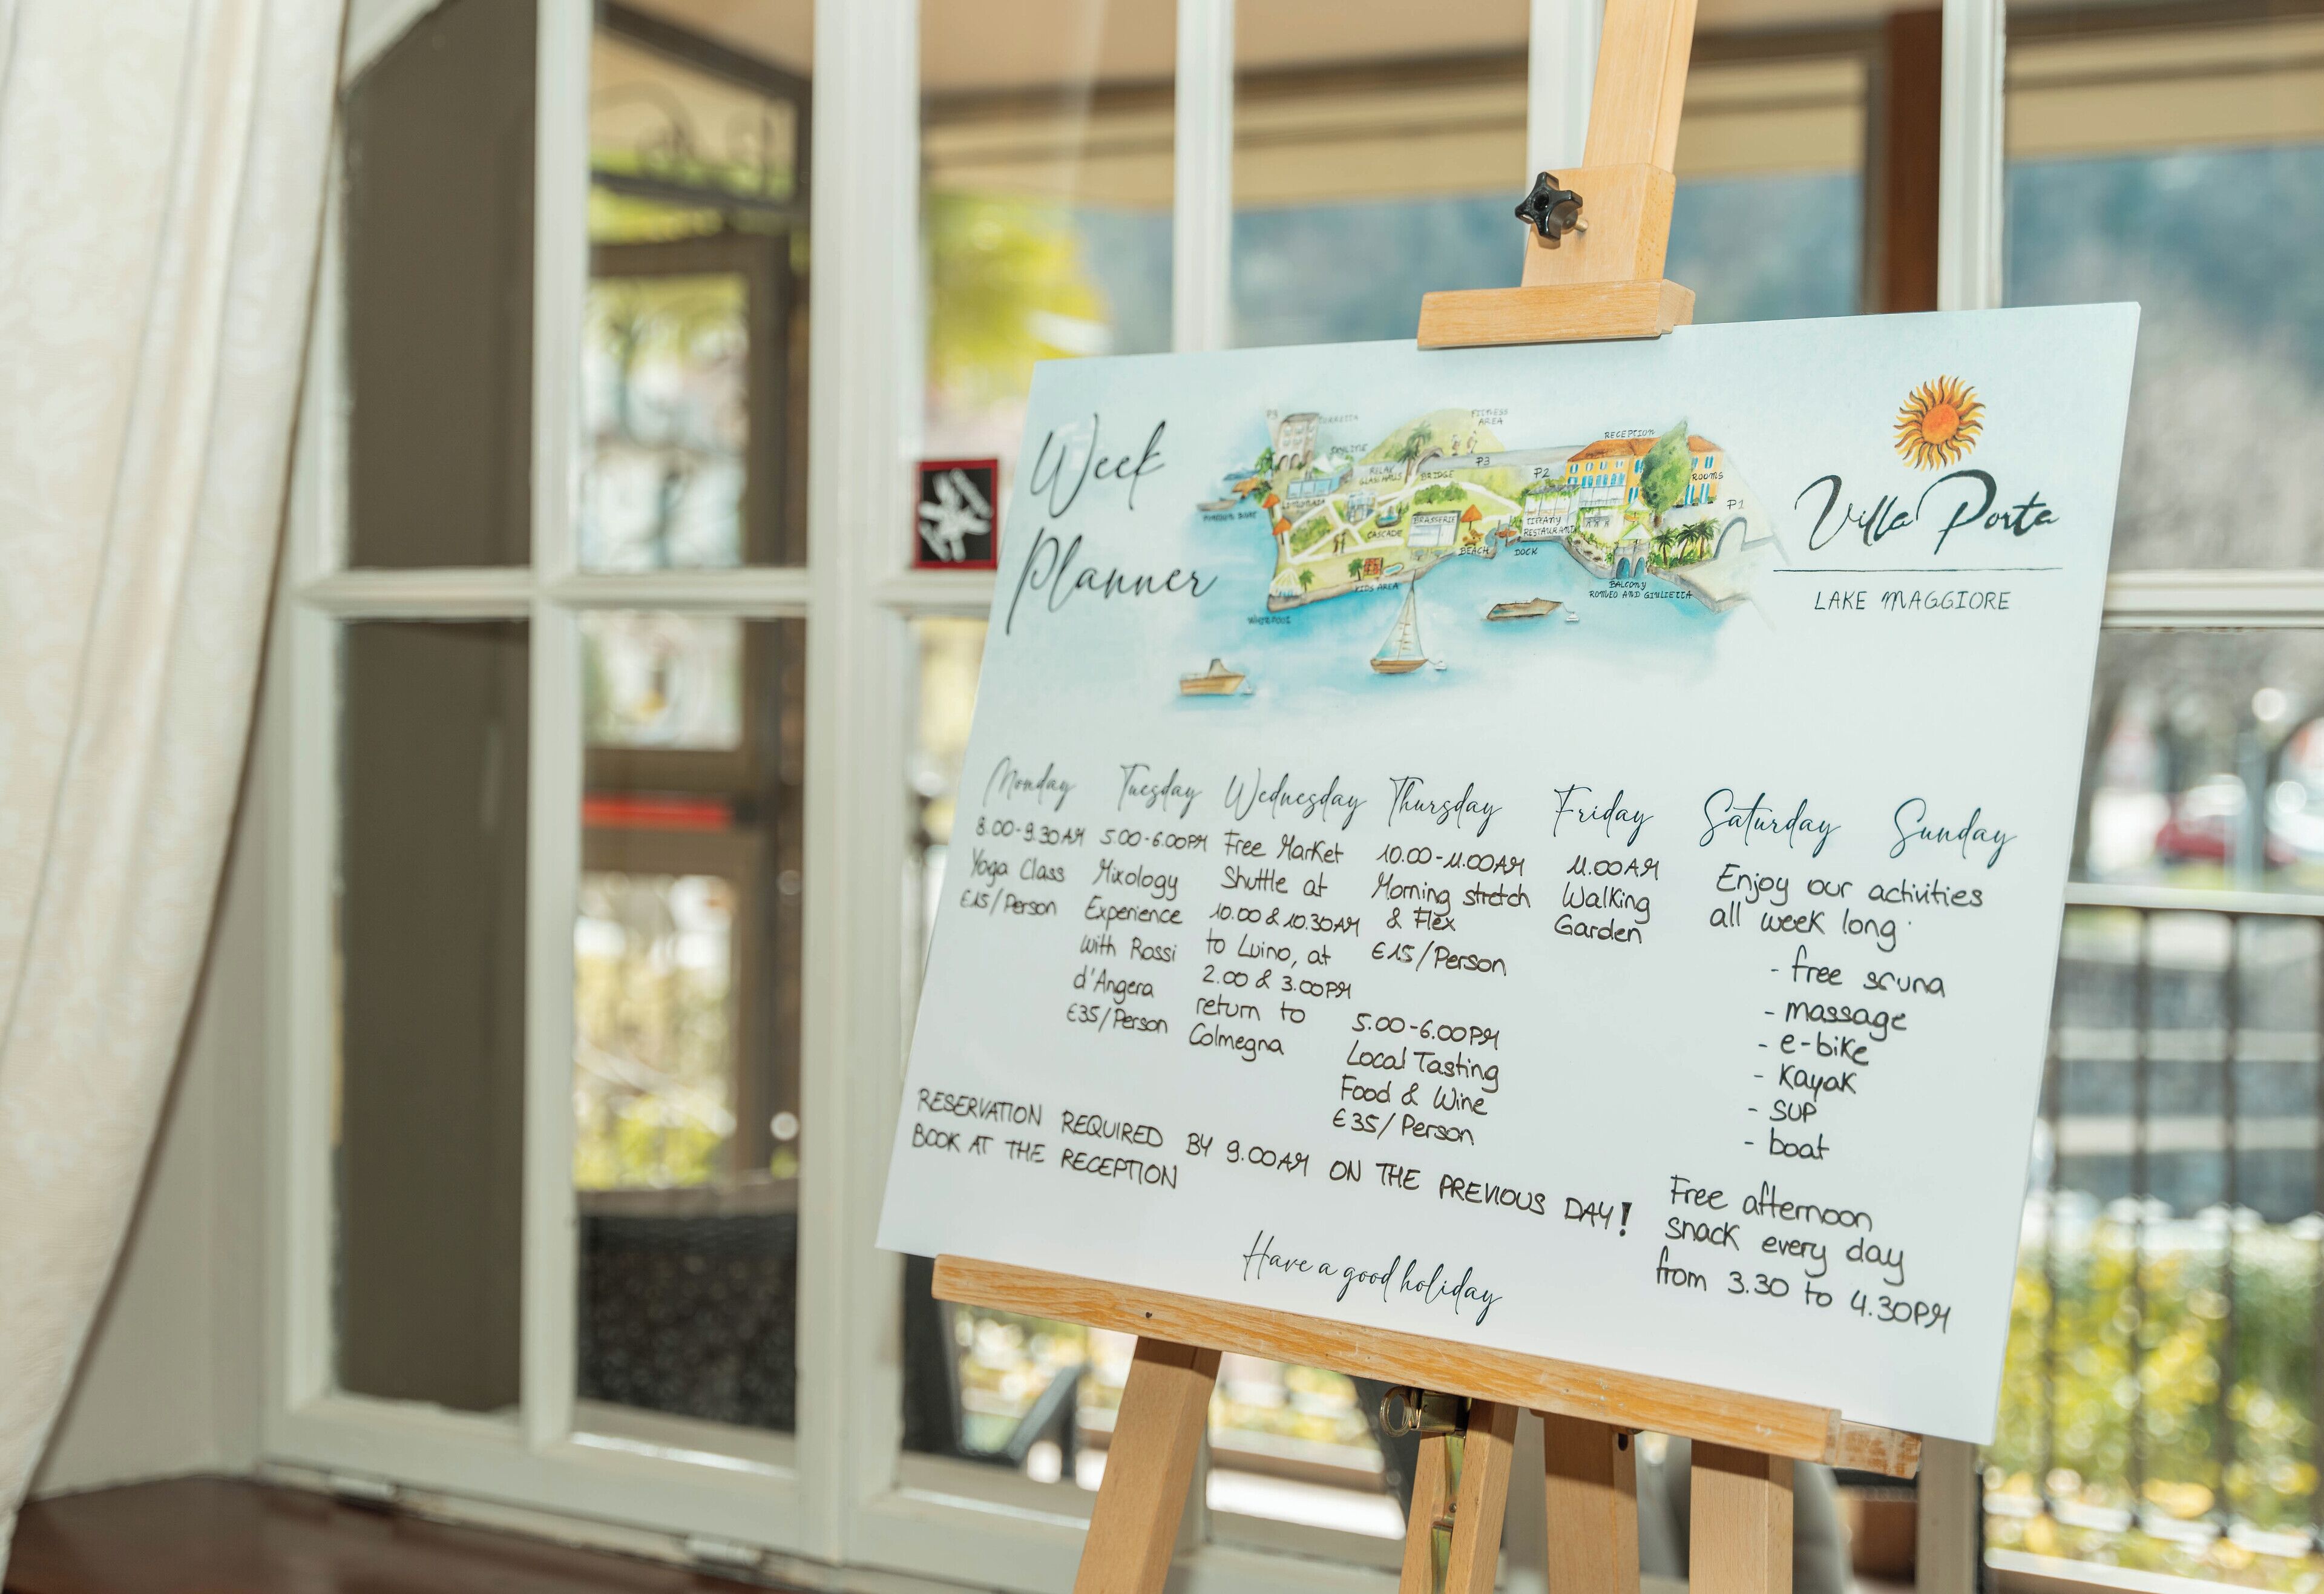 Week
Planner
P4
TORRETTA
FITNESS
AREA
SKYLINE
RELAX
GLASSHAUS
BRIDGE
P3
P2
RECEPTION
ROOMS
P1
BRASSERIE
CASCADE
TIFFANY
RESTAURANT
BEACH
DOCK
KIDS AREA
BALCONY
ROMEO AND GIULIETTA
WHIRLPOOL
Villa Porta
LAKE MAGGIORE
Monday
8.00-9.30AM
Yoga Class
€15/Person
Tuesday
5.00-6.00PM
Mixology
Experience
with Rossi
d'Angera
€35/Person
Wednesday
Free Market
Shuttle at
10.00 & 10.30AM
to Luino, at
2.00 & 3.00PM
return to
Colmegna
Thursday
10.00-11.00AM
Morning stretch
& Flex
€15/Person
5.00-6.00PM
Local Tasting
Food & Wine
€35/Person
Friday
11.00AM
Walking
Garden
Saturday Sunday
Enjoy our activities
all week long
- free sauna
- massage
- e-bike
- Kayak
- SUP
- boat
Free afternoon
snack every day
from 3.30 to 4.30PM
RESERVATION REQUIRED BY 9.00AM ON THE PREVIOUS DAY!
BOOK AT THE RECEPTION
Have a good holiday